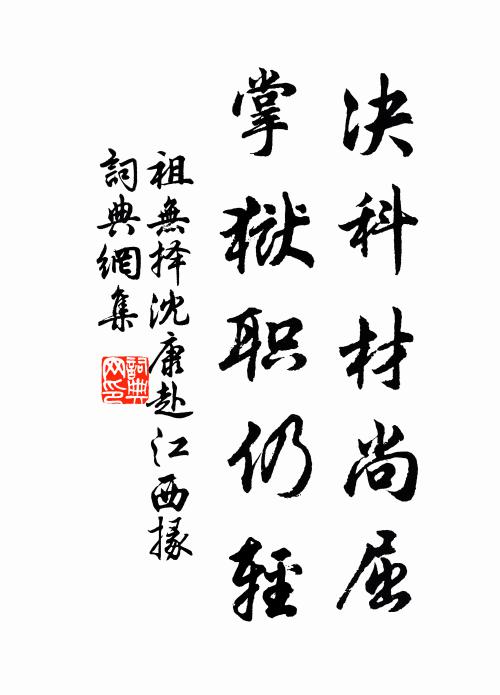 决科材尚屈
掌獄职仍輕
祖無择沈康赴江西掾
詞典網集
詞典网印